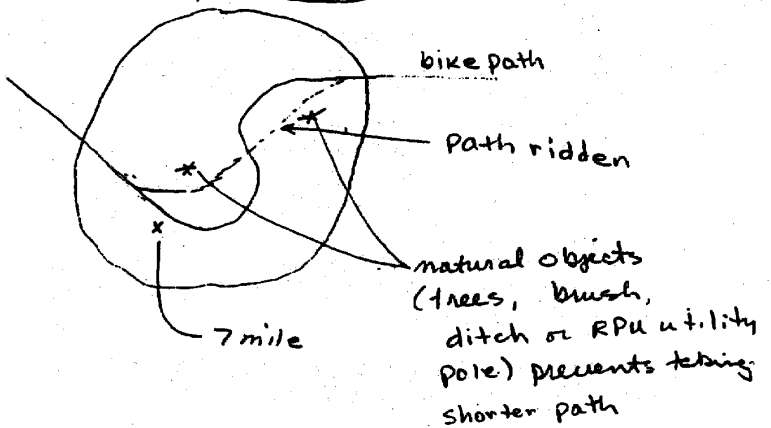 bike path
path ridden
natural objects
(trees, brush,
ditch or RPU utility
pole) prevents taking
shorter path
x
7 mile